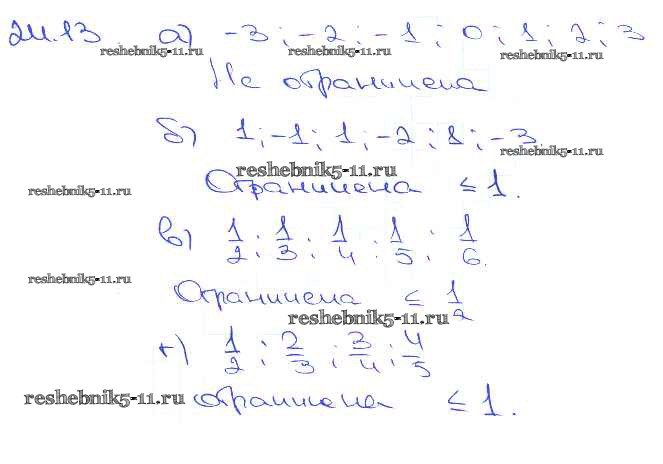 24.13 а) -3; -2; -1; 0; 1; 2; 3
reshebnik5-11.ru reshebnik5-11.ru reshebnik5-11.ru
Не ограничена
б) 1; -1; 1; -2; 1; -3
reshebnik5-11.ru
reshebnik5-11.ru
reshebnik5-11.ru
Ограничена ≤ 1.
в) 1/2; 1/3; 1/4; 1/5; 1/6.
reshebnik5-11.ru
Ограничена ≤ 1/2
reshebnik5-11.ru
г) 1/2; 2/3; 3/4; 4/5
reshebnik5-11.ru ограничена ≤ 1.